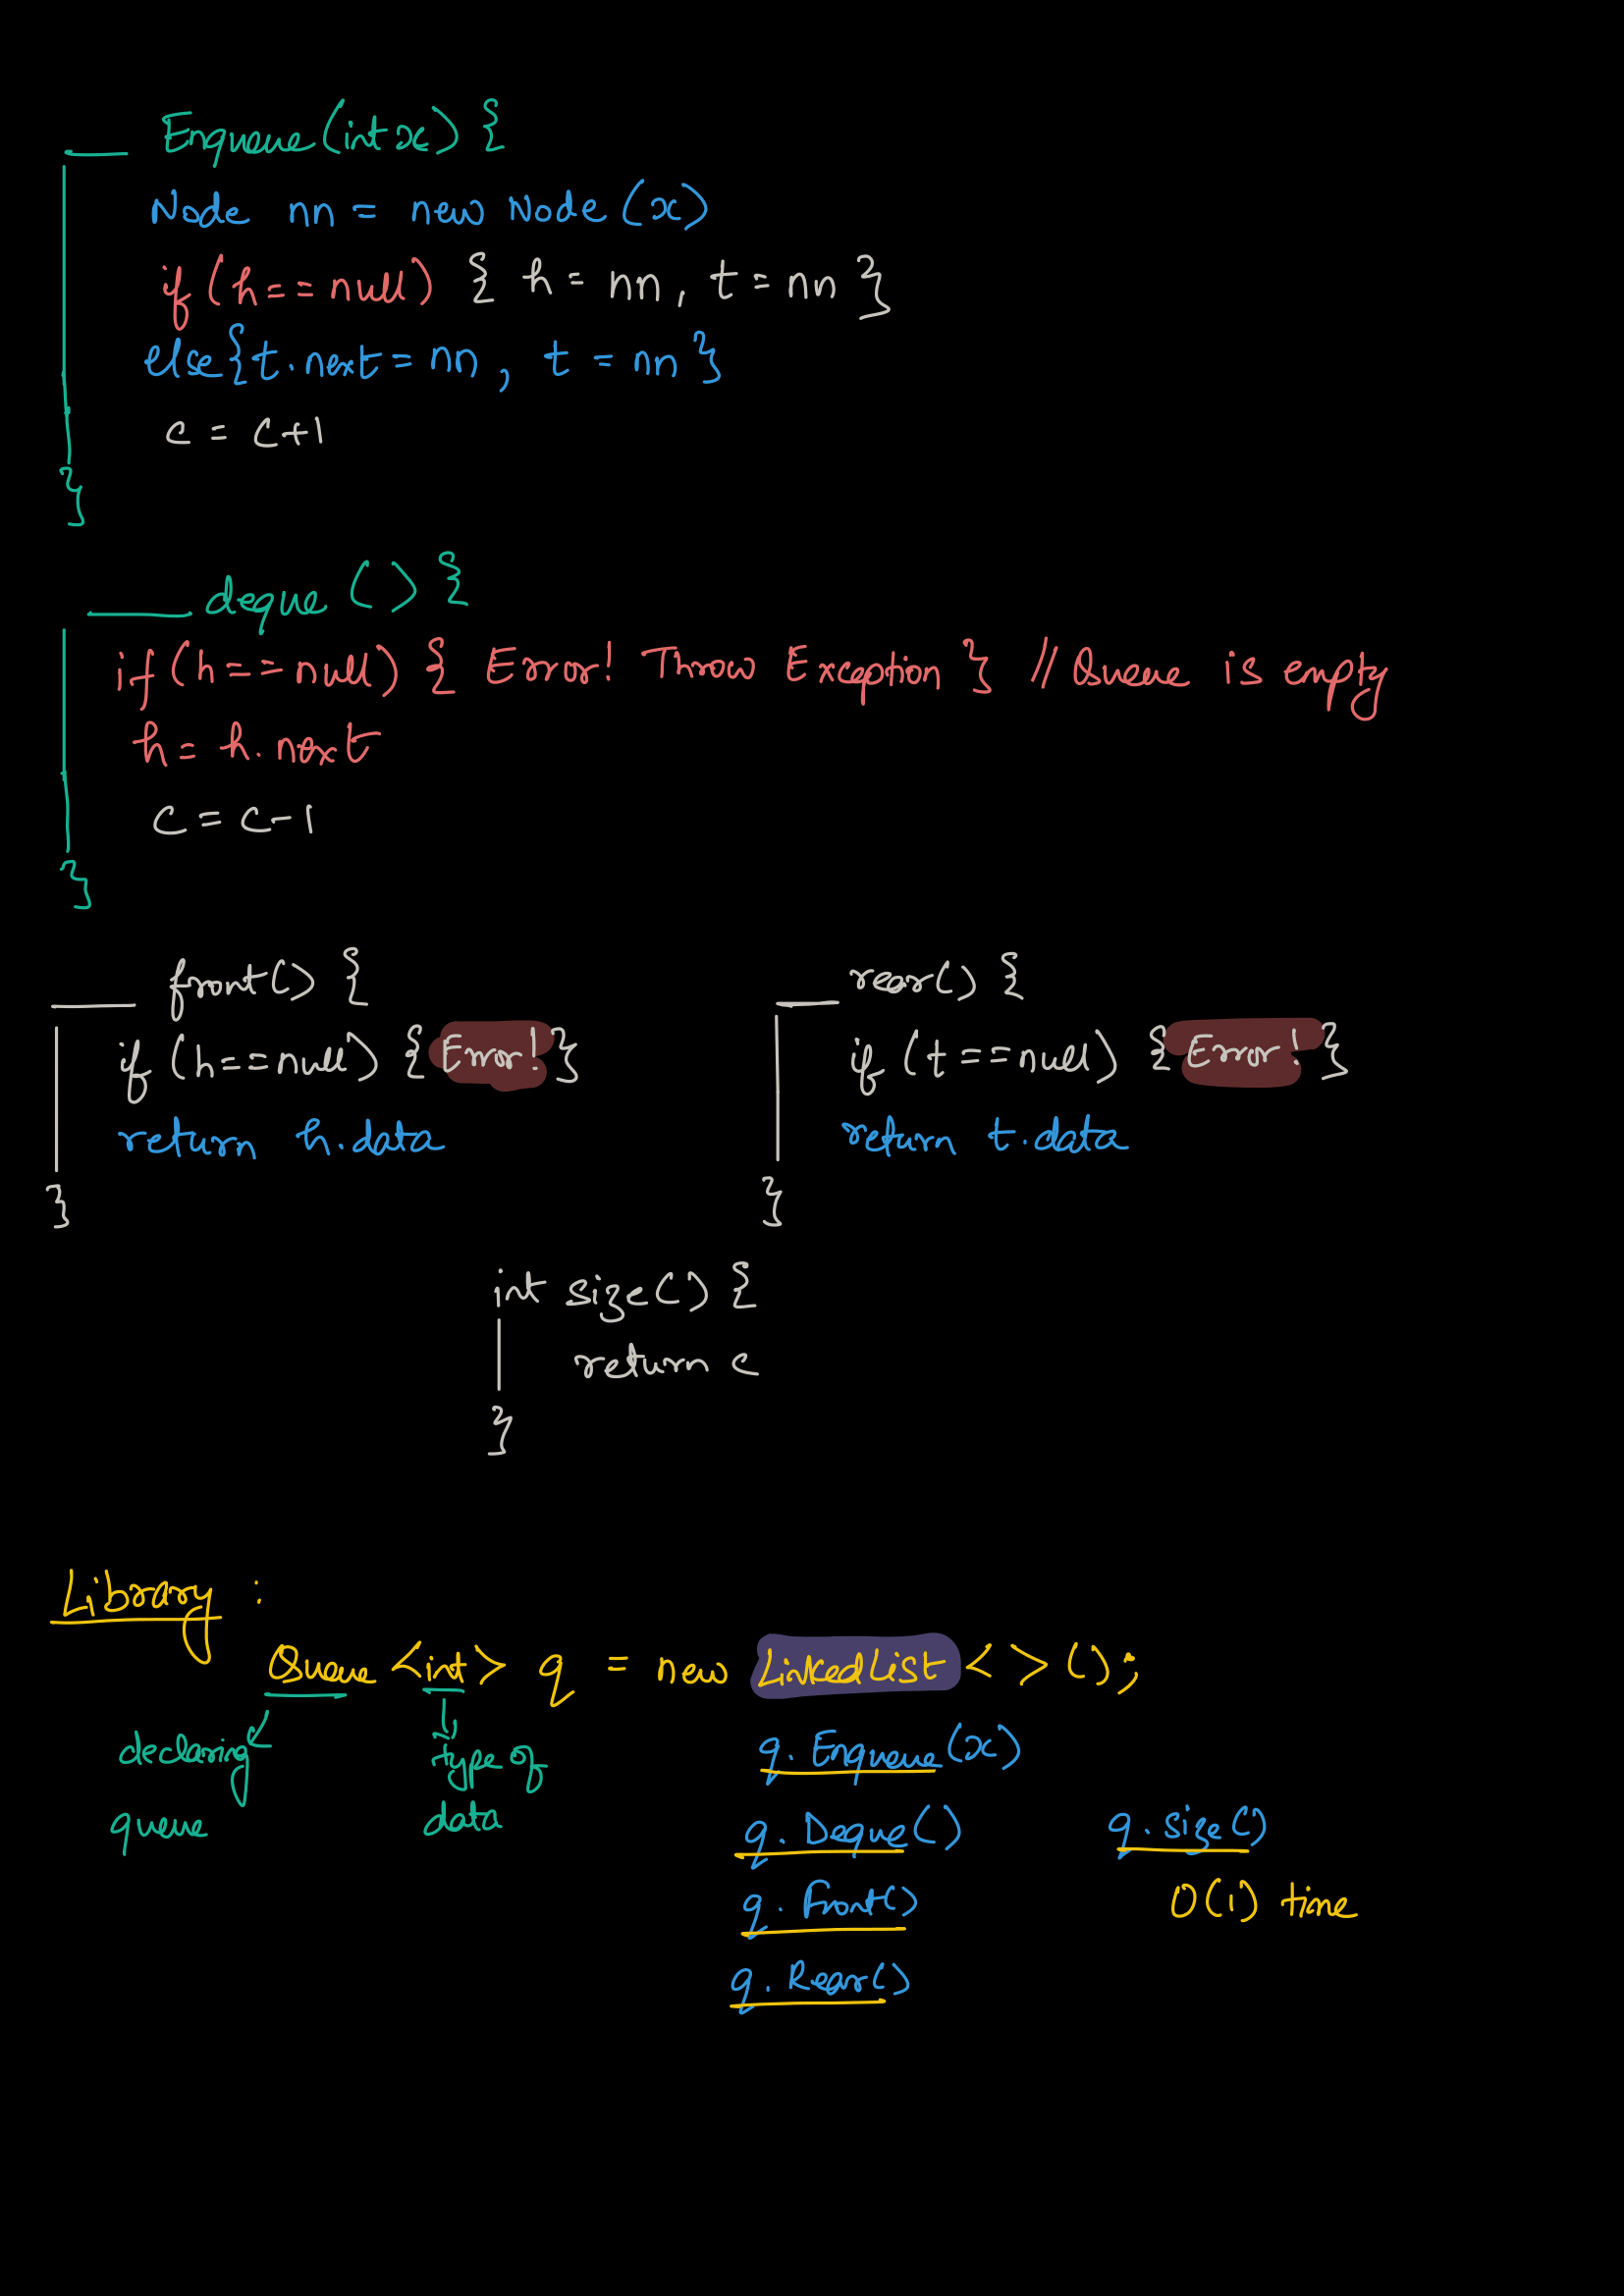 Enqueue(int x) {
Node nn = new Node (x)
if (h == null) { h = nn, t = nn }
else{t.next = nn, t = nn}
c = c+1
}
deque () {
if (h == null) { Error! Throw Exception } // Queue is empty
h = h.next
c = c-1
}
front() {
if (h==null) {Error!}
return h.data
}
rear() {
if (t==null) {Error!}
return t.data
}
int size() {
return c
}
Library :
Queue <int> q = new LinkedList < > ();
declaring queue
type of data
q. Enqueue(x)
q. Deque()
q. Front()
q. Rear()
q. size()
O(1) time